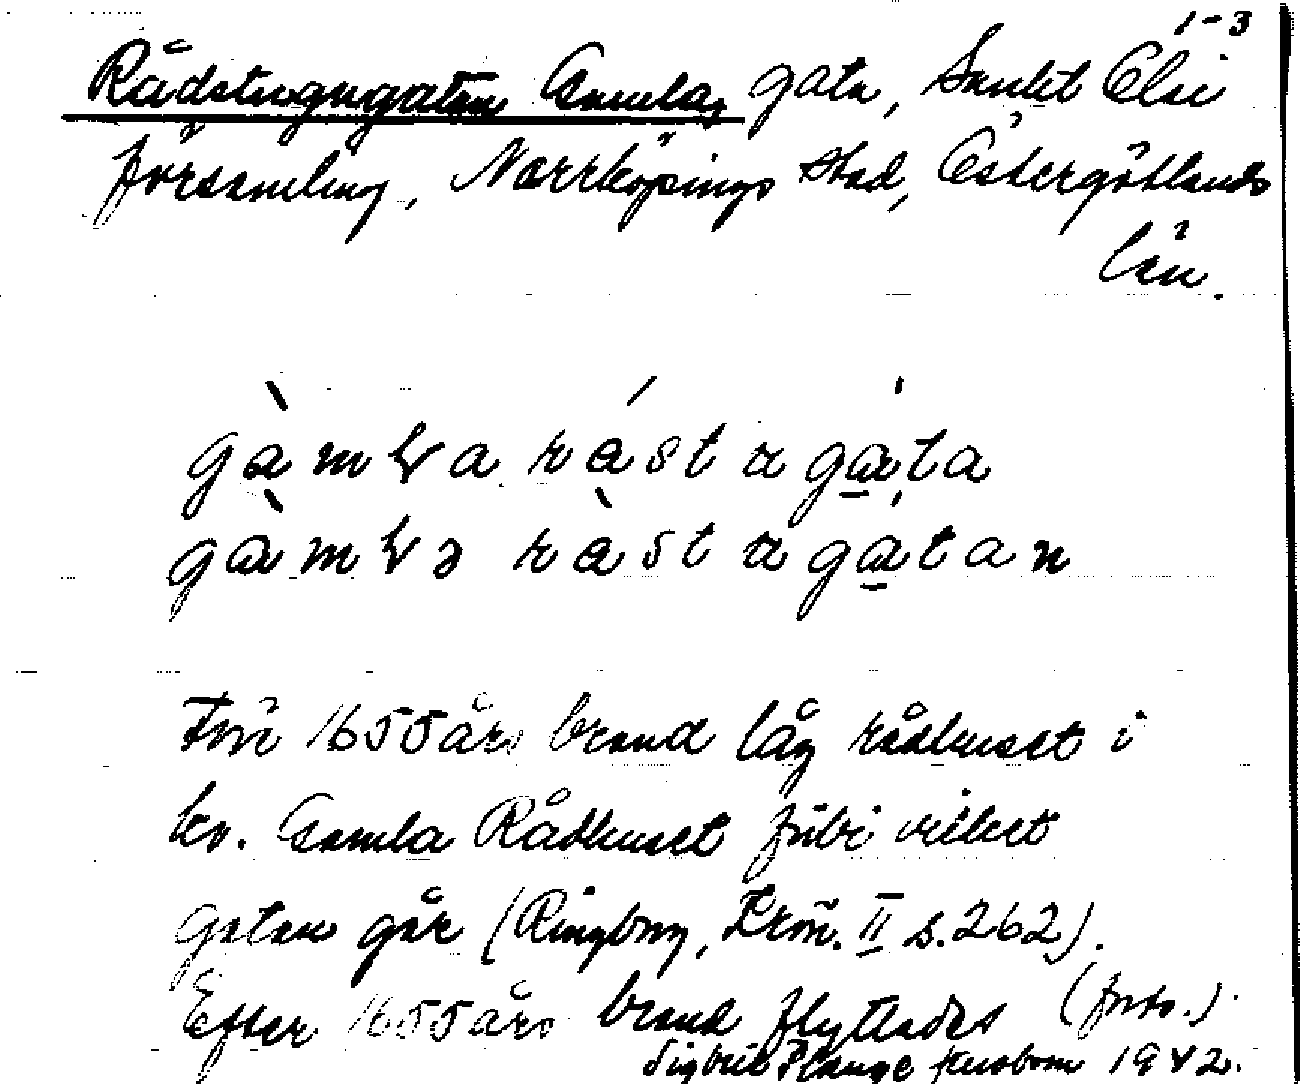 1-3
Rådstugugatan Gamla, gata, Sankt Olai
församling, Norrköpings stad, Östergötlands
län.
gàmla rástugáta
gàmlə ràstugátan
Före 1655 års brand låg rådhuset i
kv. Gamla Rådhuset förbi vilket
gatan går (Ringborg, Krön. II s. 262).
Efter 1655 års brand flyttades (forts.)
Sigbrit Plange 1942.